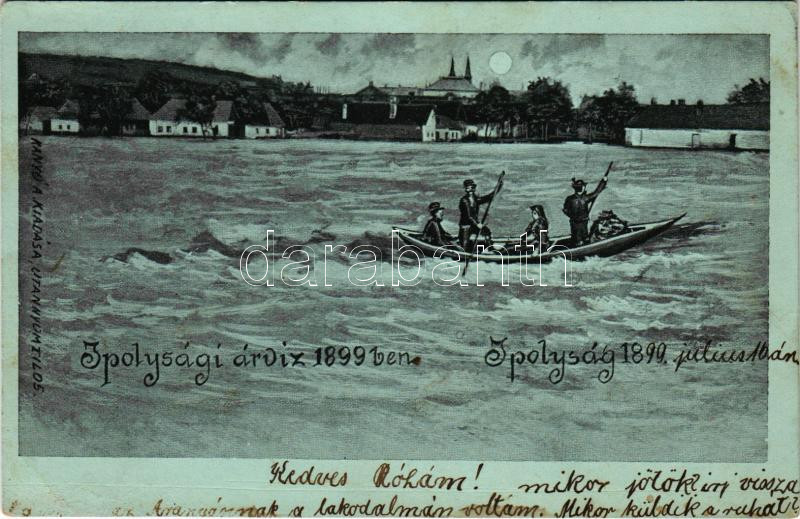 KIADÁSA UTÁNNYOMÁS TILOS.
darabanth
Ipolysági árviz 1899 ben.
Ipolyság 1899. július 16 án.
Kedves Róhám! mikor jötök irj vissza
Aranyórnak a lakodalmán voltam. Mikor küldik a ruhát?